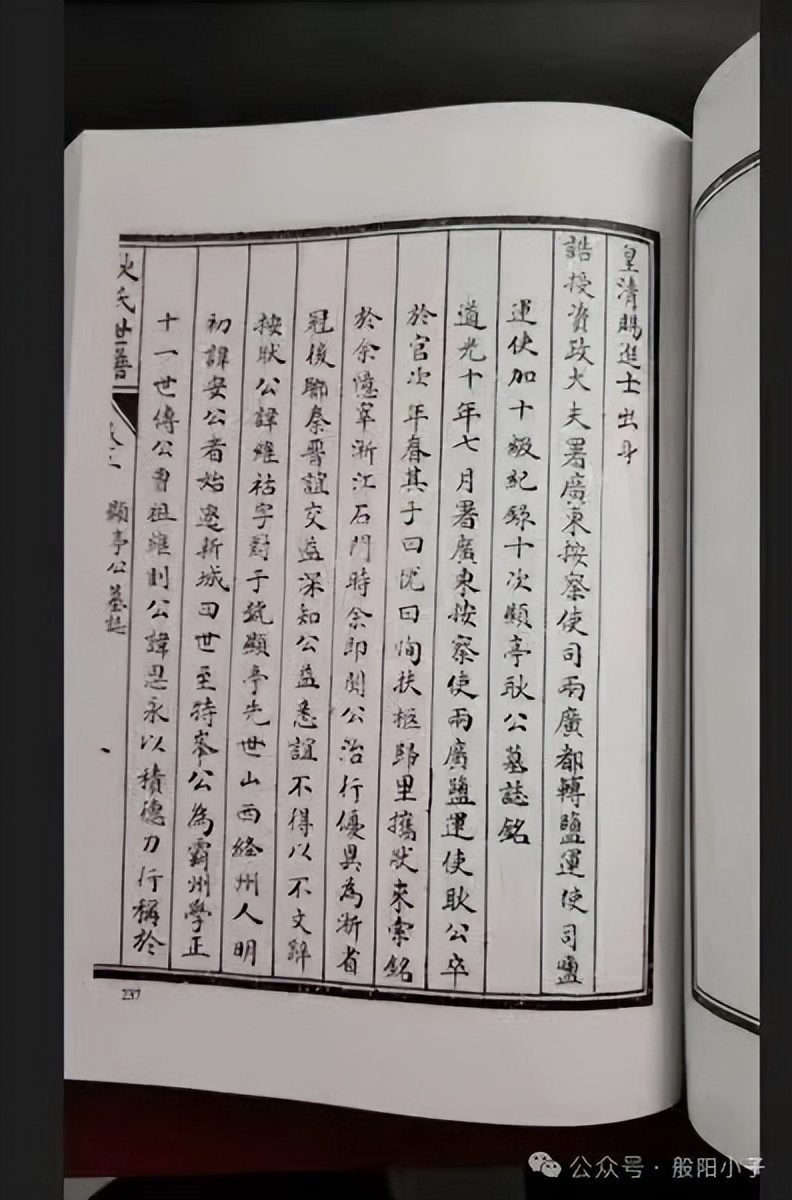 皇清賜進士出身
誥授資政大夫署廣東按察使司兩廣都轉鹽運使司鹽
運使加十級紀錄十次顯亭耿公墓誌銘
道光十年七月署廣東按察使兩廣鹽運使耿公卒
於官次年春其子曰忱曰恂扶柩歸里攜狀來索銘
於余憶宰浙江石門時余即聞公治行優異為浙省
冠後聯秦晋誼交益深知公益悉誼不得以不文辭
按狀公諱維祜字對于號顯亭先世山西絳州人明
初諱安公者始遷新城四世至特峯公為霸州學正
十一世傳公曾祖維則公諱思永以積德力行稱於
氏世譜
顯亭公墓誌
237
公众号·般阳小子